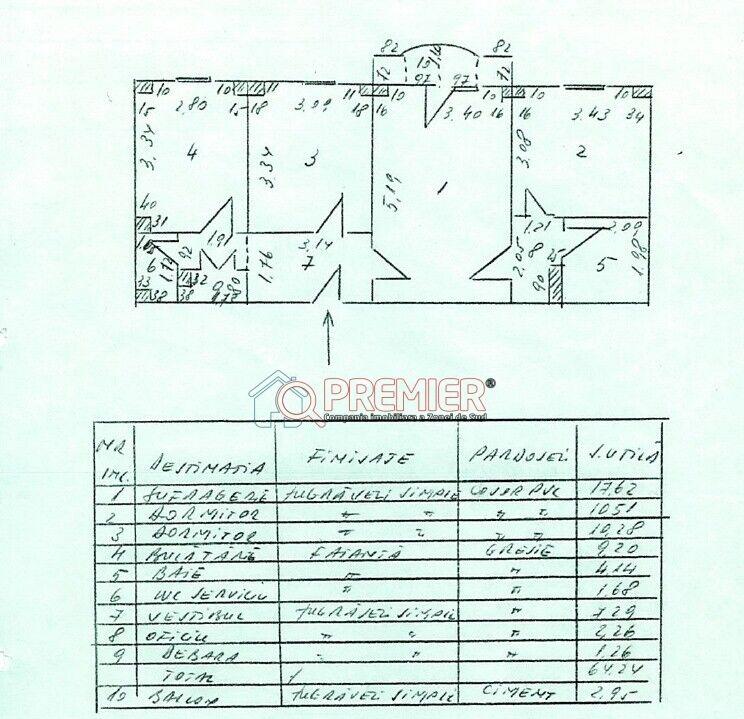 82 10 7,10 82
72 97 97 72
10 10 11 11 10 10 10
15 2,80 15 18 3,09 18 16 3,40 16 16 3,43 34
3,34 4 3,34 3 5,19 1 3,08 2
40
31 1,91 3,14 1,21 2,09
92 1,76 7 2,05 8 25 1,98
6 1,72 32 9 80 90 5
33 38 38
PREMIER®
Compania imobiliara a Zonei de Sud
NR INC. DESTINATIA FINISAJE PARDOSELI S.UTILĂ
1 SUFRAGERIE ZUGRĂVELI SIMPLE COVOR PVC 17,62
2 DORMITOR " " " " 10,51
3 DORMITOR " " " " 10,28
4 BUCĂTĂRIE FAIANȚĂ GRESIE 9,20
5 BAIE " " 4,14
6 WC SERVICIU " " 1,68
7 VESTIBUL ZUGRĂVELI SIMPLE " 7,29
8 OFICIU " " " 2,26
9 DEBARA " " " 1,26
TOTAL / 64,24
10 BALCON ZUGRĂVELI SIMPLE CIMENT 2,95